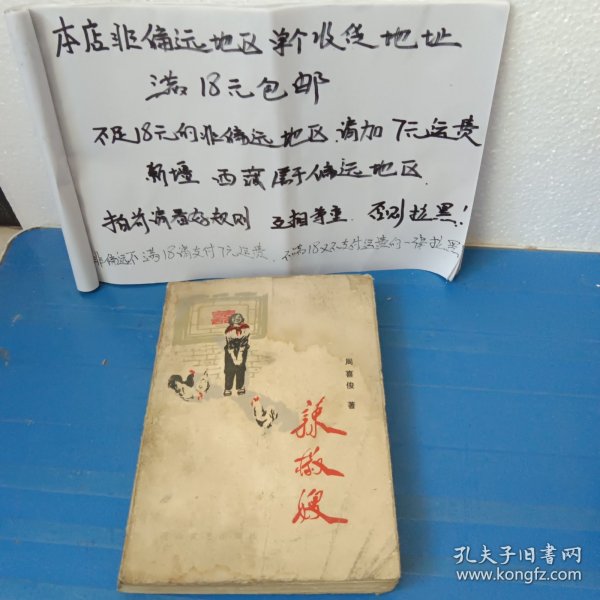 本店非偏远地区单个收货地址
满18元包邮
不足18元的非偏远地区请加7元运费
新疆 西藏属于偏远地区
拍前请看店规则 互相尊重 否则拉黑!
非偏远不满18请支付7元运费,不满18又不支付运费的一律拉黑
周喜俊 著
辣椒嫂
孔夫子旧书网
www.kongfz.com